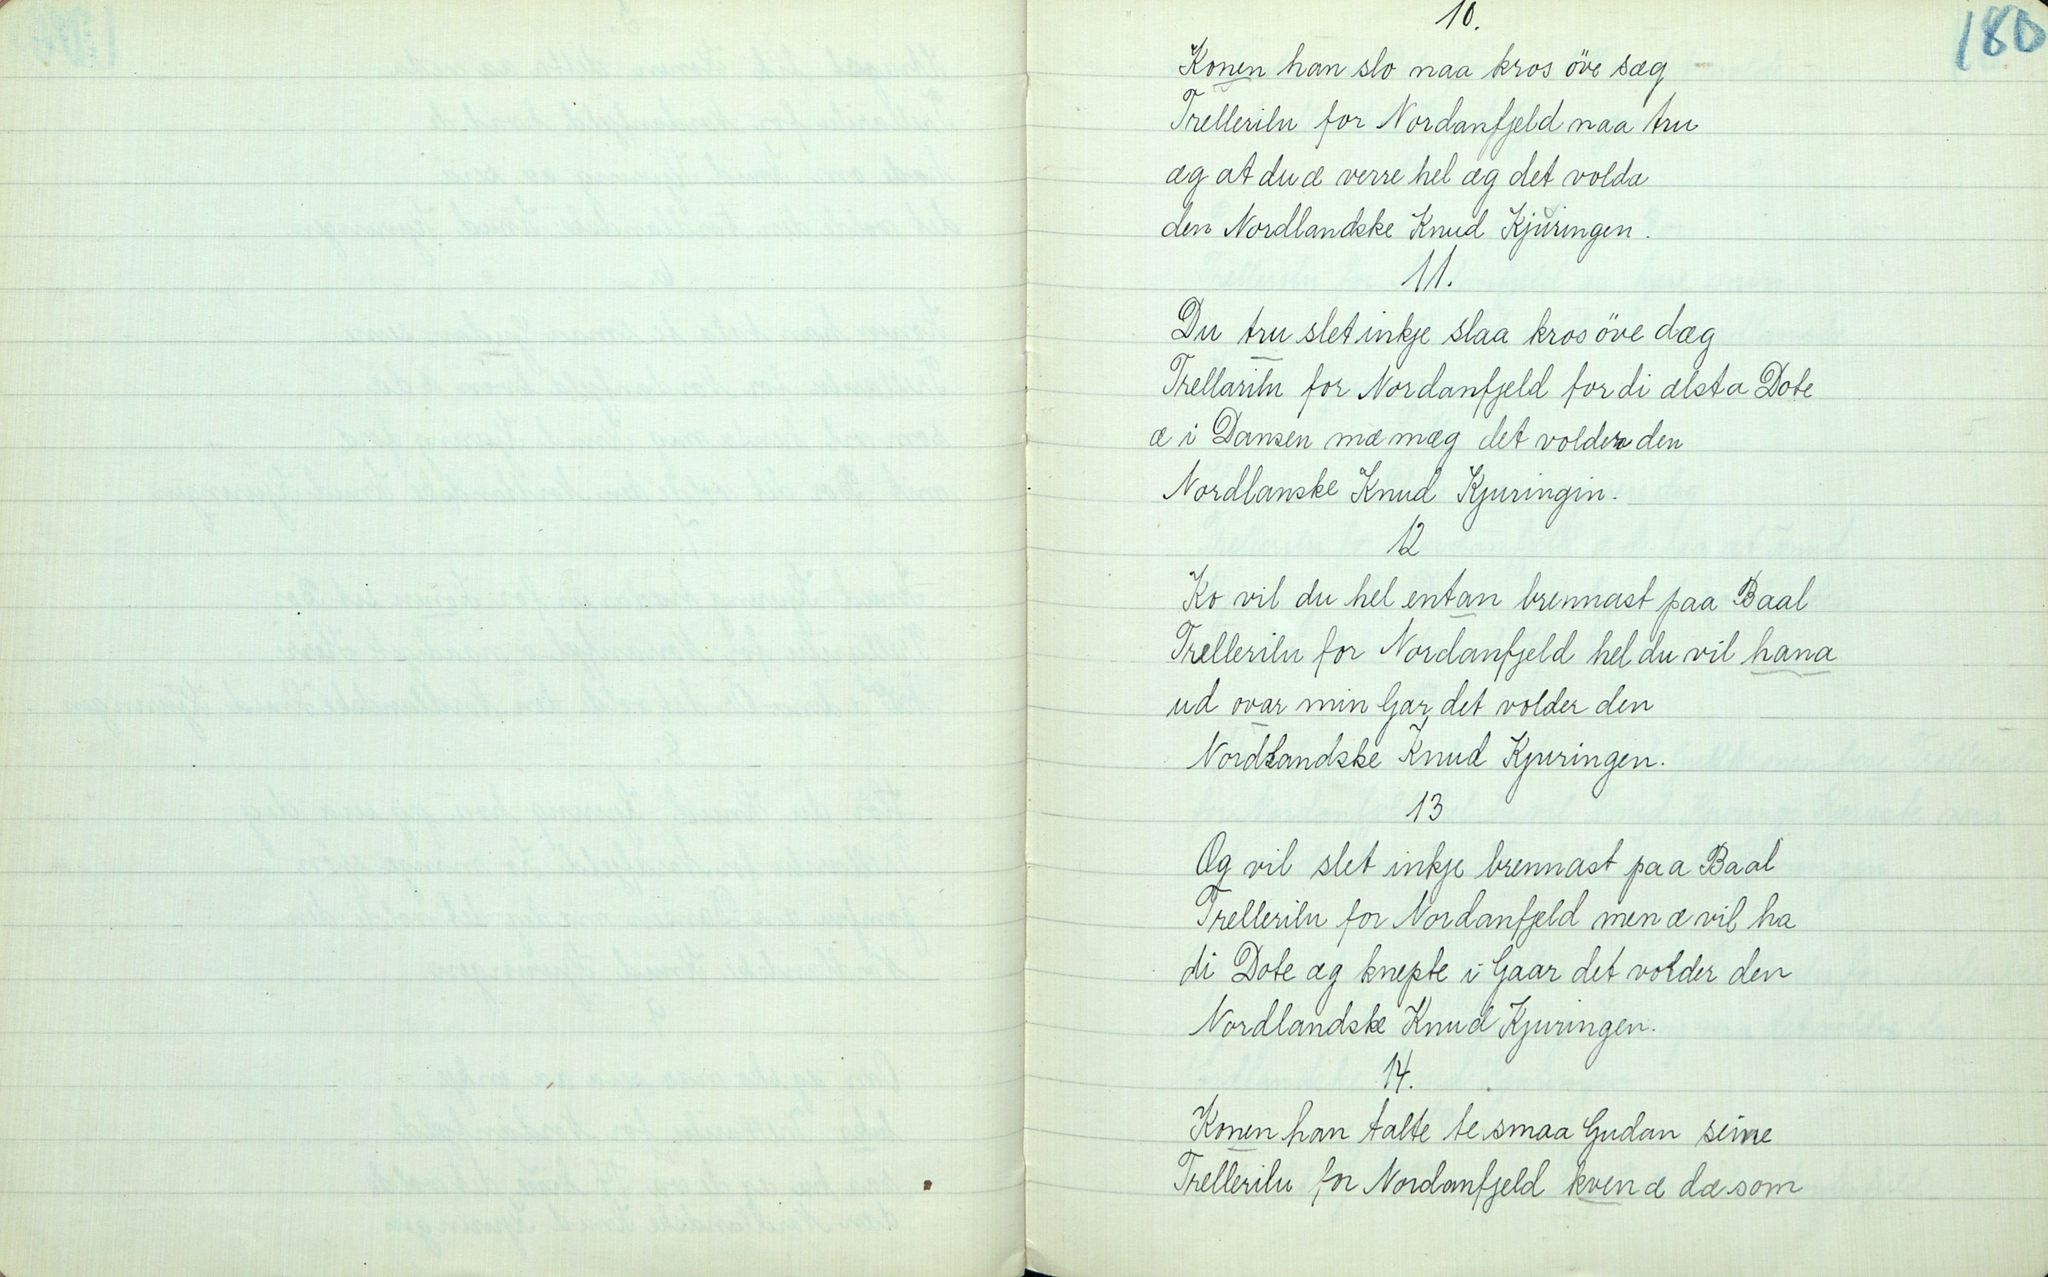 180
10.
Konen han slo naa kros öve sæg
Trellerilu for Nordanfjeld naa tru
æg at du æ verre hel æg det volda
den Nordlandske Knud Kjuringen.
11.
Du tru slet inkje slaa kros öve dæg
Trellarilu for Nordanfjeld for di ælsta Dote
æ i Dansen mæ mæg det volder den
Nordlanske Knud Kjuringin.
12
Ko vil du hel entan brennast paa Baal
Trellerilu for Nordanfjeld hel du vil hana
ud ovar min Gar det volder den
Nordlandske Knud Kjuringen.
13
Æg vil slet inkje brennast paa Baal
Trellerilu for Nordanfjeld men æ vil ha
di Dote æg knepte i Gaar det volder den
Nordlandske Knud Kjuringen.
14.
Konen han talte te smaa Gudan seine
Trellerilu for Nordanfjeld kven æ dæ som